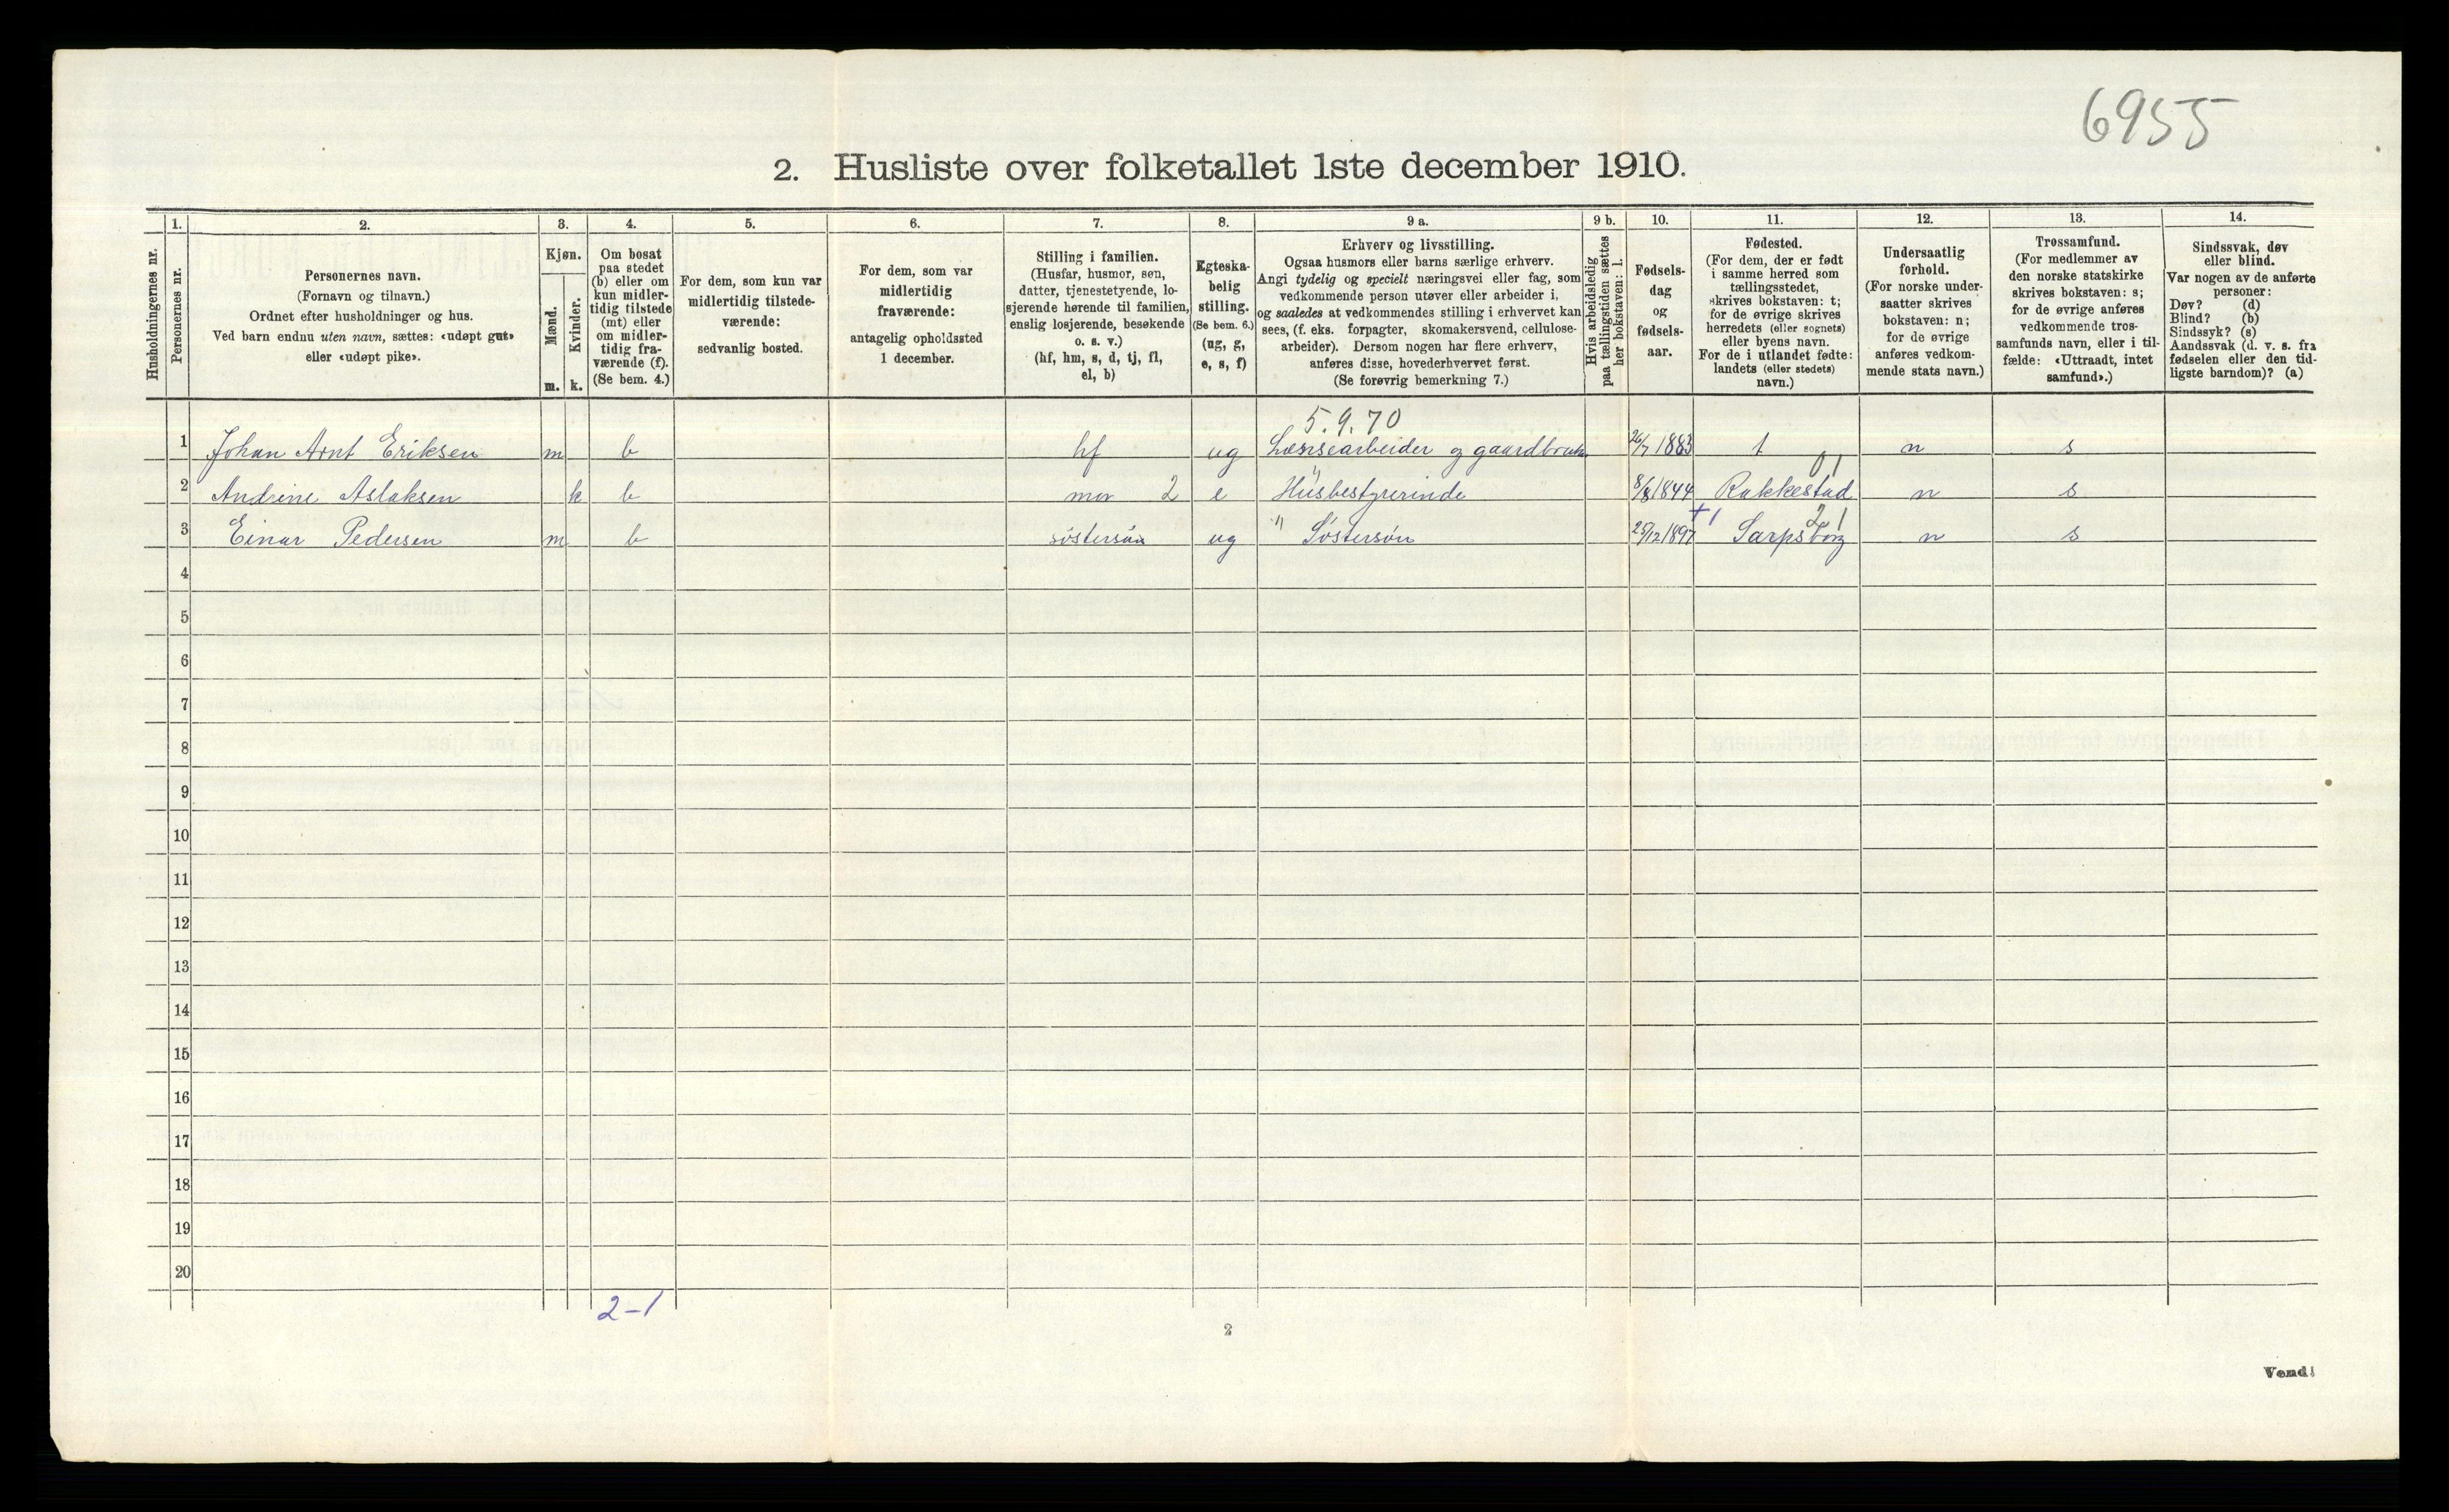 6955
2. Husliste over folketallet 1ste december 1910.
Husholdningernes nr.
1.
Personernes nr.
2.
Personernes navn.
(Fornavn og tilnavn.)
Ordnet efter husholdninger og hus.
Ved barn endnu uten navn, sættes: «udøpt gut»
eller «udøpt pike».
3.
Kjøn.
Mænd.
m.
Kvinder.
k.
4.
Om bosat
paa stedet
(b) eller om
kun midler-
tidig tilstede
(mt) eller
om midler-
tidig fra-
værende (f).
(Se bem. 4.)
5.
For dem, som kun var
midlertidig tilstede-
værende:
sedvanlig bosted.
6.
For dem, som var
midlertidig
fraværende:
antagelig opholdssted
1 december.
7.
Stilling i familien.
(Husfar, husmor, søn,
datter, tjenestetyende, lo-
sjerende hørende til familien,
enslig losjerende, besøkende
o. s. v.)
(hf, hm, s, d, tj, fl,
el, b)
8.
Egteska-
belig
stilling.
(Se bem. 6.)
(ug, g,
e, s, f)
9 a.
Erhverv og livsstilling.
Ogsaa husmors eller barns særlige erhverv.
Angi tydelig og specielt næringsvei eller fag, som
vedkommende person utøver eller arbeider i,
og saaledes at vedkommendes stilling i erhvervet kan
sees, (f. eks. forpagter, skomakersvend, cellulose-
arbeider). Dersom nogen har flere erhverv,
anføres disse, hovederhvervet først.
(Se forøvrig bemerkning 7.)
9 b.
Hvis arbeidsledig
paa tællingstiden sættes
her bokstaven: l.
10.
Fødsels-
dag
og
fødsels-
aar.
11.
Fødested.
(For dem, der er født
i samme herred som
tællingsstedet,
skrives bokstaven: t;
for de øvrige skrives
herredets (eller sognets)
eller byens navn.
For de i utlandet fødte:
landets (eller stedets)
navn.)
12.
Undersaatlig
forhold.
(For norske under-
saatter skrives
bokstaven: n;
for de øvrige
anføres vedkom-
mende stats navn.)
13.
Trossamfund.
(For medlemmer av
den norske statskirke
skrives bokstaven: s;
for de øvrige anføres
vedkommende tros-
samfunds navn, eller i til-
fælde: «Uttraadt, intet
samfund».)
14.
Sindssvak, døv
eller blind.
Var nogen av de anførte
personer:
Døv? (d)
Blind? (b)
Sindssyk? (s)
Aandssvak (d. v. s. fra
fødselen eller den tid-
ligste barndom)? (a)
5.9.70
1 Johan Arnt Eriksen m b hf ug Lænsearbeider og gaardbruk. 26/7 1883 t n s
01
2 Andrine Aslaksen k b mor 2 e " Husbestyrerinde 8/8 1844 Rakkestad n s
+1 21
3 Einar Pedersen m b søstersøn ug " Søstersøn 25/12 1897 Sarpsborg n s
4
5
6
7
8
9
10
11
12
13
14
15
16
17
18
19
20
2-1
2
Vend!